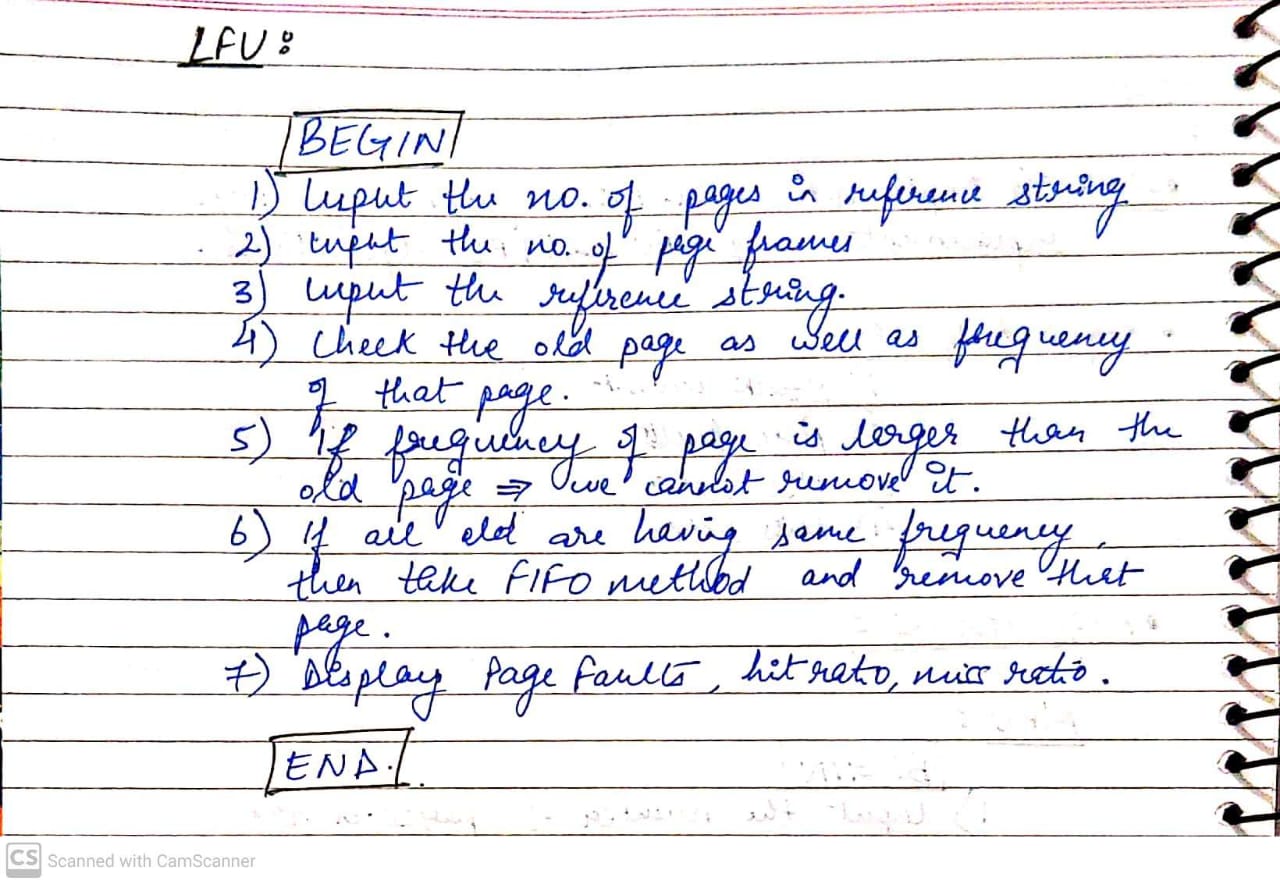 LFU:
BEGIN
1) Input the no. of pages in reference string
2) input the no. of page frames
3) input the reference string.
4) Check the old page as well as frequency
of that page.
5) If frequency of page is larger than the
old page ⇒ we cannot remove it.
6) If all old are having same frequency,
then take FIFO method and remove that
page.
7) Display Page Faults, hit ratio, miss ratio.
END.
CS Scanned with CamScanner